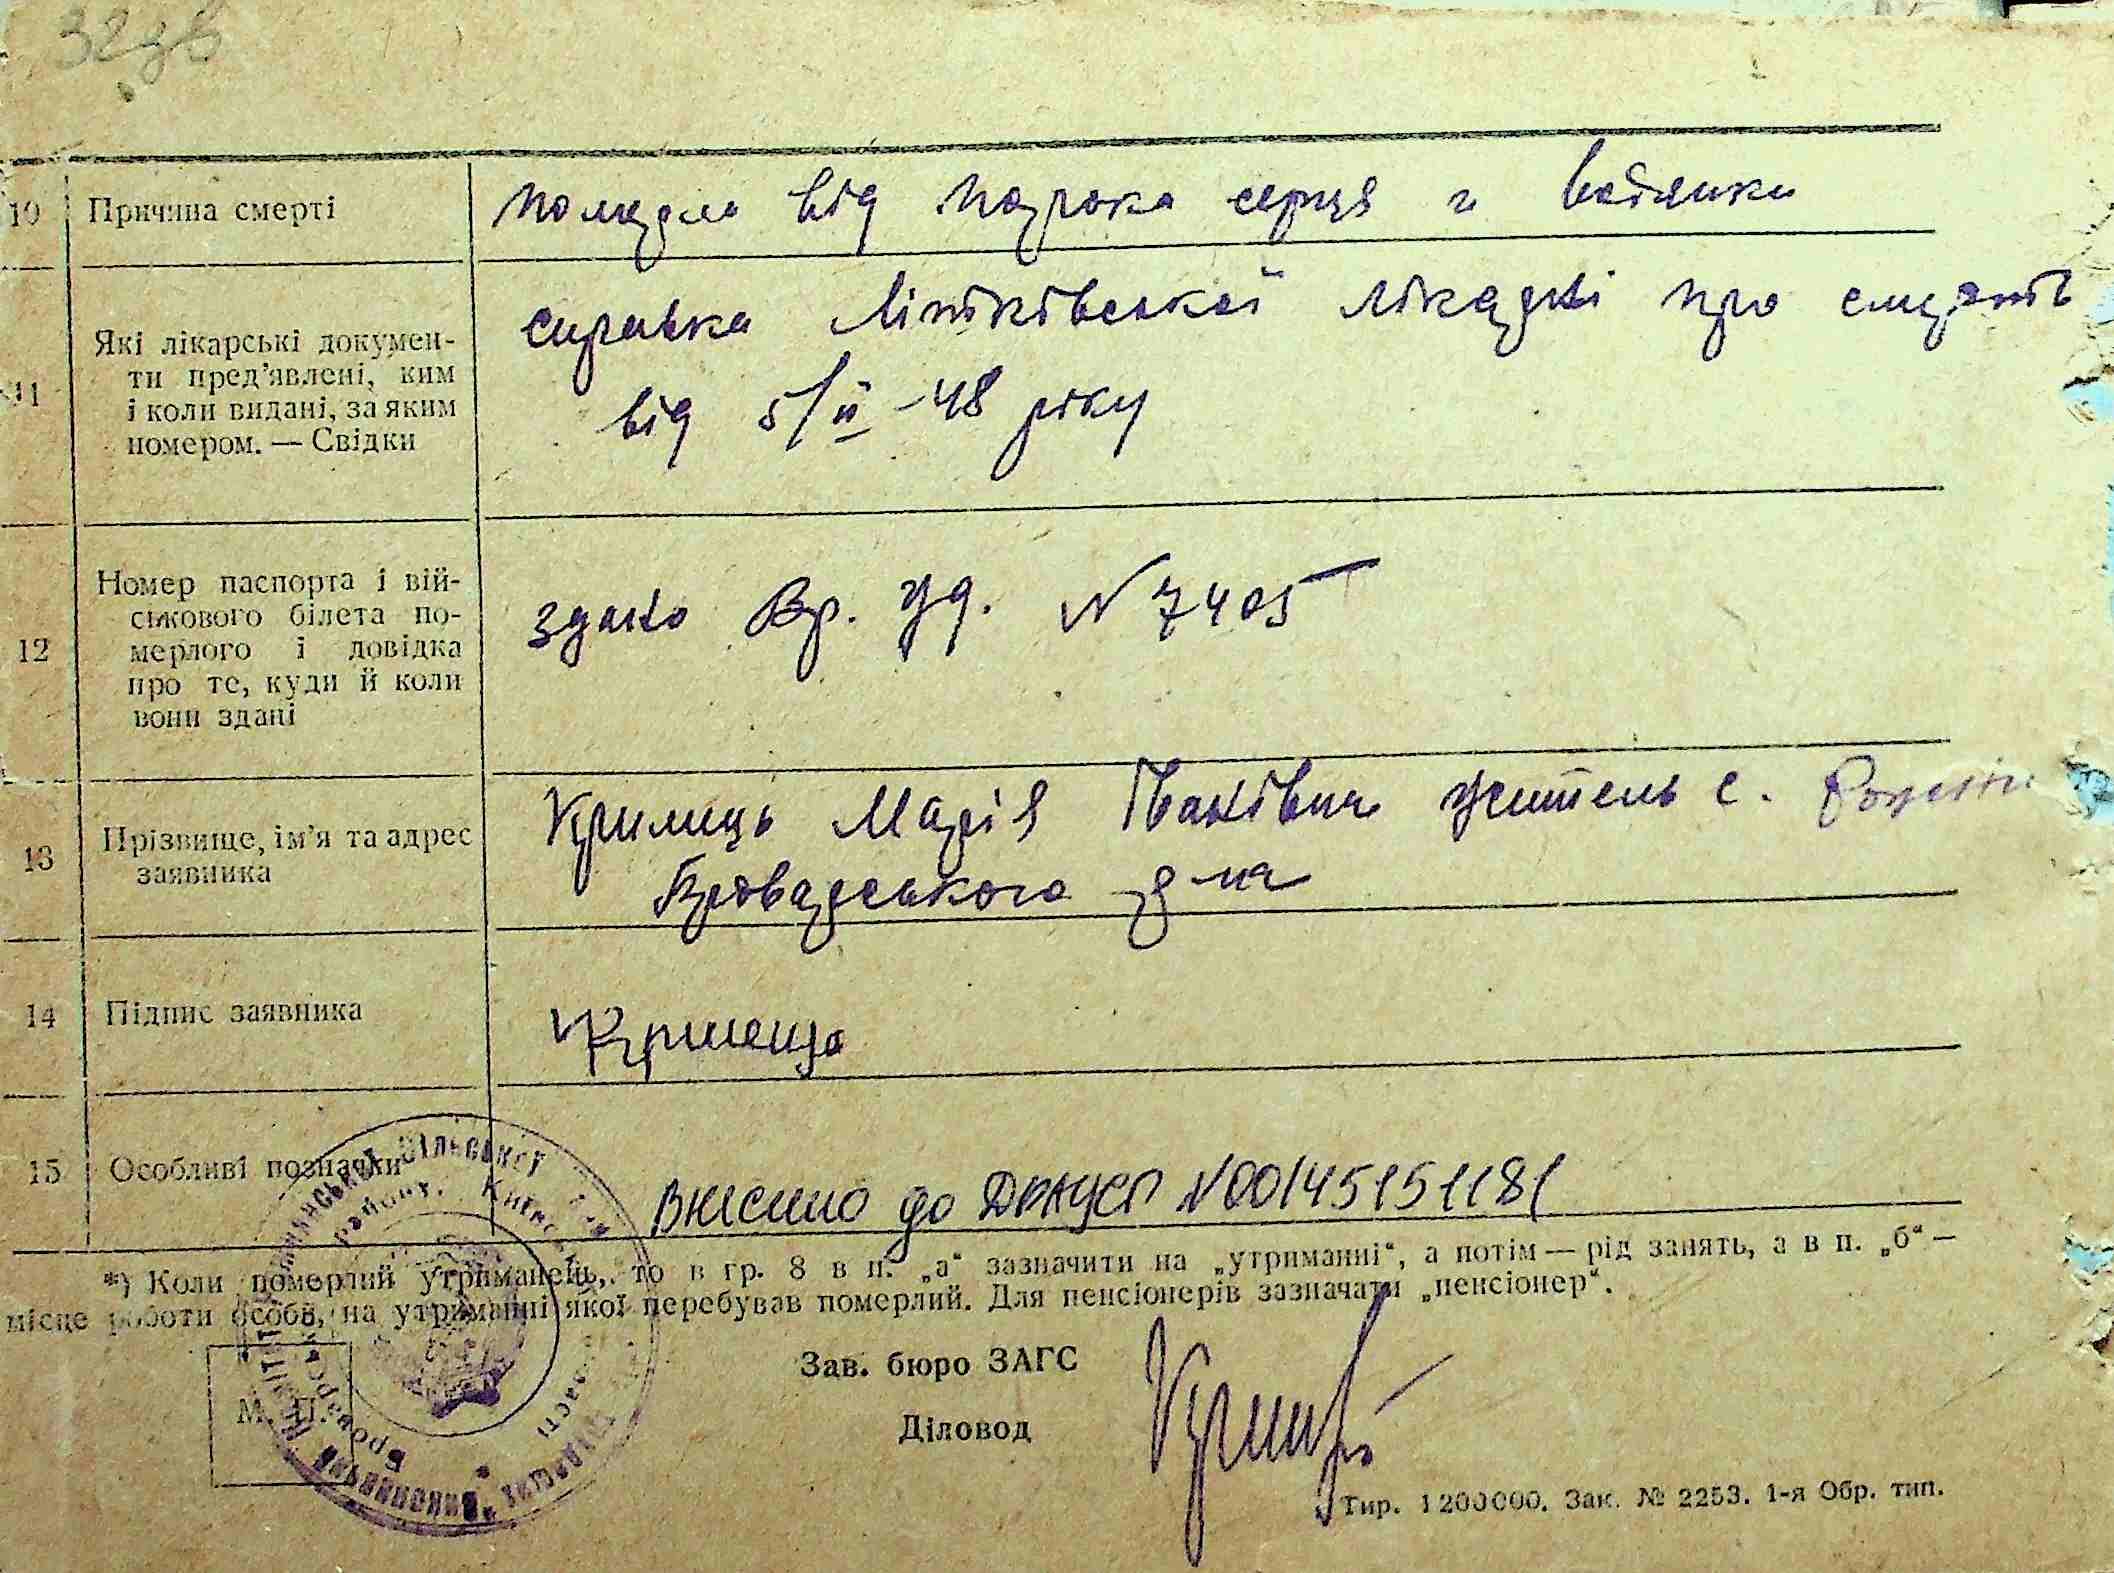 10 Причина смерті
померла від порока серця и водянки
11 Які лікарські докумен-
ти пред’явлені, ким
і коли видані, за яким
номером. — Свідки
справка лікарні про смерть
від 5/ІІ -48 ріку
12 Номер паспорта і вій-
ськового білета по-
мерлого і довідка
про те, куди й коли
вони здані
здано Вр. уд. N 7405
13 Прізвище, ім’я та адрес
заявника
Крилець Марія Іванівна житель с.
Броварського р-на
14 Підпис заявника
15 Особливі позначки
Внесено до ДРАЦСГ N00145151181
*) Коли померлий утриманець, то в гр. 8 в п. „а“ зазначити на „утриманні“, а потім — рід занять, а в п. „б“ —
місце роботи особи, на утриманні якої перебував померлий. Для пенсіонерів зазначати „пенсіонер“.
М. П.
Зав. бюро ЗАГС
Діловод
Тир. 1200000. Зак. № 2253. 1-я Обр. тип.